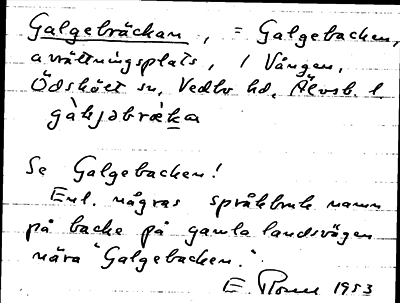 Galgebräckan, = Galgebacken,
avrättningsplats, i Vången,
Ödskölt sn, Vedbo hd, Älvsb. l.
gàljəbræka
Se Galgebacken!
Enl. några språkbruk namn
på backe på gamla landsvägen
nära "Galgebacken."
E. 1953